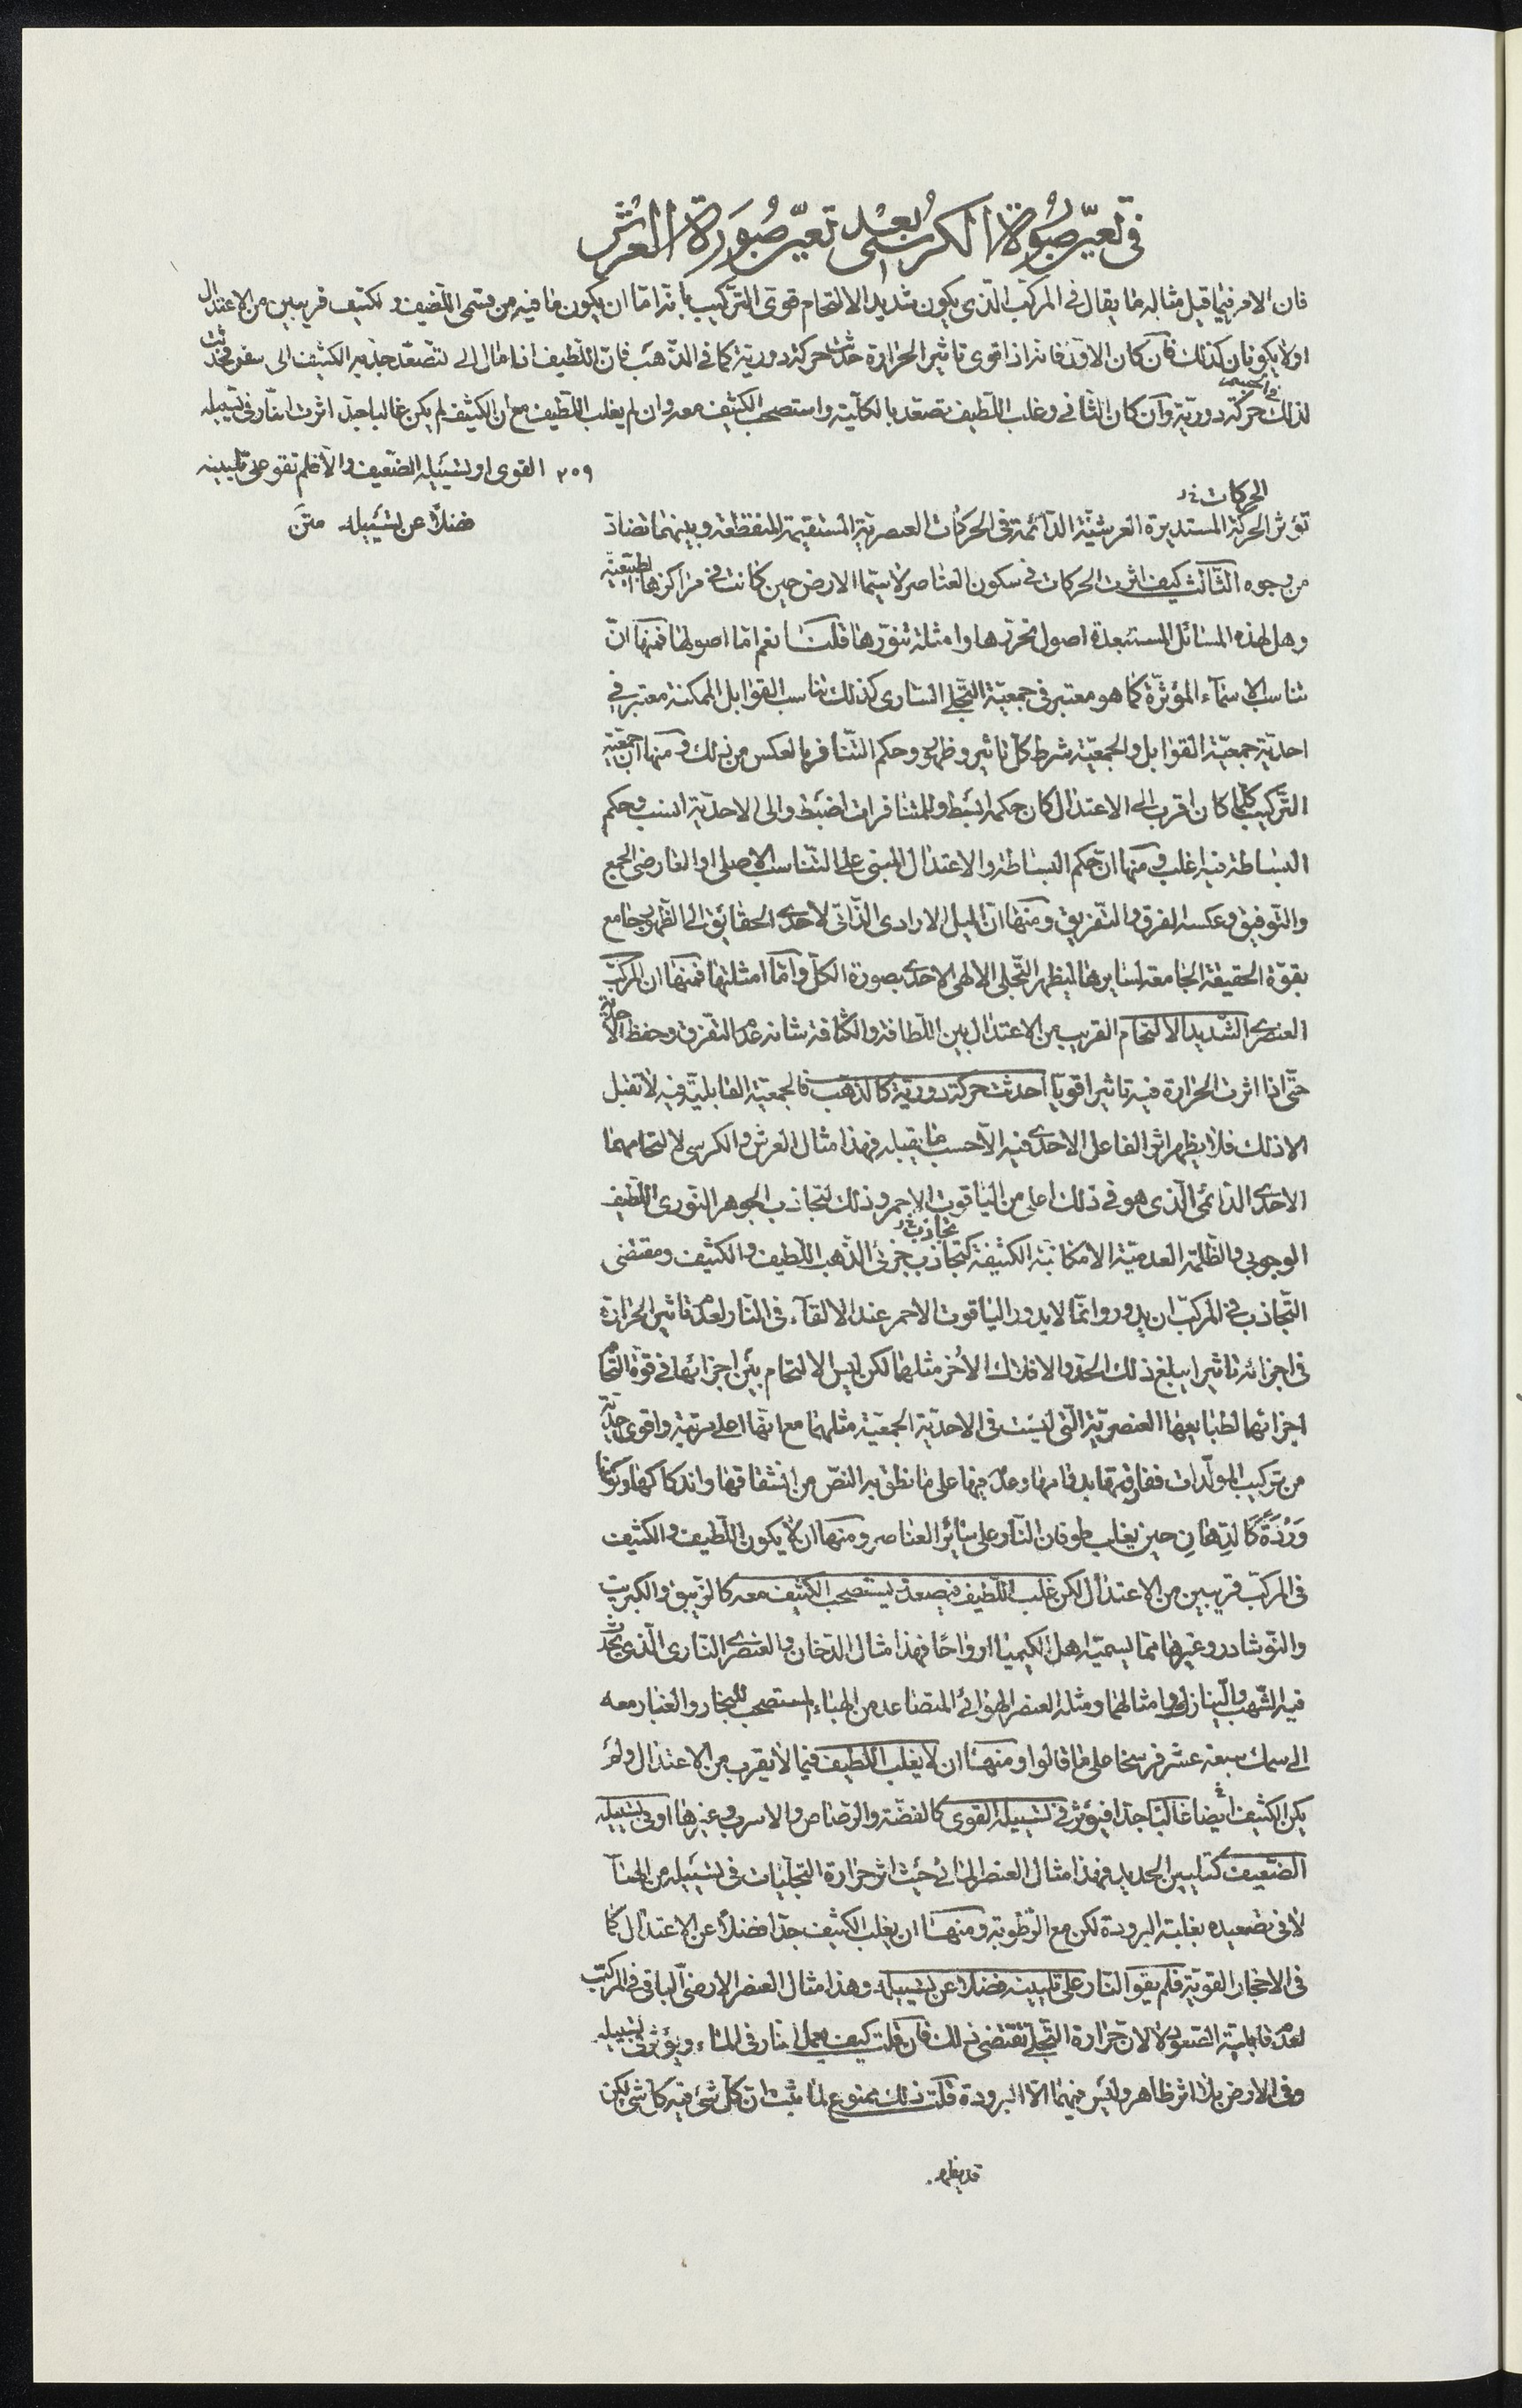 في تعيّن صورة الكرسى بعد تعيّن صورة العرش
فان الامر فيما قيل مثاله ما يقال فى المركّب الّذى يكون شديد الالتحام قوىّ التّركيب بانّه امّا ان يكون ما فيه من قسمى اللّطيف و الكثيف قريبين من الاعتدال
اولا يكونان كذلك فان كان الاوّل فانه اذا قوى تاثير الحرارة حدثت حركة دوريّة كما فى الذّهب فانّ اللّطيف اذا مال الى التّصعّد جذبه الكثيف الى سفل فحدثت
لذلك فى الجسم حركة دوريّة وان كان الثّانى وغلب اللّطيف تصعّد بالكلّيّة واستصحب الكثيف معه وان لم يغلب اللّطيف مع ان الكثيف لم يكن غالبا جدّا اثرت النّار فى تسييله
٢٥٩ القوى او تسييله الضّعيف والّا فلم تقو على تليينه
فضلا عن تسييله متن
الحركات خ‍
تؤثر الحركة المستديرة العرشيّة الدّائمة فى الحركات العنصريّة المستقيمة المنقطعة وبينهما تضادّ
من وجوه الثّالث كيف اثرت الحركات فى سكون العناصر لا سيّما الارض حين كانت فى مراكزها الطّبيعيّة
وهل لهذه المسائل المستبعدة اصول تحرّرها وامثلة تنوّرها قلت نعم امّا اصولها فمنها انّ
تناسب الاسماء المؤثّرة كما هو معتبر فى جمعيّة التّجلّى السّارى كذلك تناسب القوابل الممكنة معتبر فى
احديّة جمعيّة القوابل والجمعيّة شرط كلّ تاثير وظهور وحكم التّنافر بالعكس من ذلك ومنها انّ جمعيّة
التّركيب كلّما كان اقرب الى الاعتدال كان حكمه ابسط وللمتنافرات اضبط والى الاحديّة انسب وحكم
البساطة فيه اغلب ومنها انّ حكم البساطة والاعتدال المبنى على التّناسب الاصلى او العارضى الجمع
والتّوفيق وعكسه الفرق والتّفريق ومنها انّ الميل الارادى الذّاتى لاحدى الحقائق الى الظّهور جامع
بقوّة الحقيقة الجامعة لسايرها ليظهر التّجلى الالهى الاحدى بصورة الكلّ وامّا امثلتها فمنها ان المركّب
العنصرى الشّديد الالتحام القريب من الاعتدال بين اللّطافة والكثافة شانه عدم التفرق وحفظ الاحديّة
حتّى اذا اثرت الحرارة فيه تاثيرا قويّا احدثت حركة دوريّة كالذهب فالجمعيّة القابليّة فيه لا تقبل
الا ذلك فلا يظهر اثر الفاعل الاحدى فيه الّا حسب ما يقبله فهذا مثال العرش والكرسى لالتحامهما
الاحدى الدّائمى الّذى هو فى ذلك اعلى من الياقوت الاحمر وذلك لتجاذب الجوهر النّورى اللّطيف
تجاذب خ‍
الوجوبى والظّلمة العدميّة الامكانيّة الكثيفة كتجاذب جزئى الذّهب اللّطيف والكثيف ومقتضى
التّجاذب فى المركّب ان يدور وانّما لا يدور الياقوت الاحمر عند الالقاء فى النّار لعدم تاثير الحرارة
فى اجزائه تاثيرا يبلغ ذلك الحدّ والافلاك الاُخر مثلهما لكن ليس الالتحام بين اجزائها فى قوّة التحام
اجزائهما لطبايعها العنصريّة الّتى ليست فى الاحديّة الجمعيّة مثلهما مع انّها اعلى مرتبة واقوى احديّة
من تركيب المولّدات ففارقتهما بدوامها وعدمها على ما نطق به النصّ من انشقاقها واندكاكها وكونها
وَرْدَةً كَالدِّهَانِ حين يغلب طوفان النّار على سائر العناصر ومنها ان لا يكون اللّطيف والكثيف
فى المركّب قريبين من الاعتدال لكن غلب اللّطيف فيصعد ليستصحب الكثيف معه كالزّيبق والكبريت
والنّوشادر وغيرها ممّا يسميّه اهل الكيميا ارواحا فهذا مثال الدّخان والعنصرى النّارى الّذى يحدث
فيه الشّهب والنّيازك وامثالها ومثله العنصر الهوائى المتصاعد من الهباء المستصحب للبخار والغبار معه
الى سمك سبعة عشر فرسخا على ما قالوا ومنها ان لا يغلب اللّطيف فيما لا يقرب من الاعتدال ولم
يكن الكثيف ايضا غالبا جدّا فيؤثر فى تسييله القوى كالفضّة والرّصاص والاسرب وغيرها او فى تسييله
الضّعيف كتليين الحديد فهذا مثال العنصر المائى حيث اثر حرارة التجلّيات فى تسييله من الهبآ
لا فى تصعيده بغلبة البرودة لكن مع الرّطوبة ومنها ان يغلب الكثيف جدّا فضلا عن الاعتدال كما
فى الاحجار القويّة فلم يقو النّار على تليينه فضلا عن تسييله وهذا مثال العنصر الارضىّ الباقى فى المركّب
لعدم قابليّة الصّعود لا لانّ حرارة التّجلّى تقتضى ذلك فان قلت كيف يعمل النار فى الماء ويؤثر فى تسييله
وفى الارض بلا اثر ظاهر وليس فيهما الّا البرودة قلت ذلك ممنوع لما ثبت ان كلّ شئ فيه كلّ شئ لكن
قد يظهر